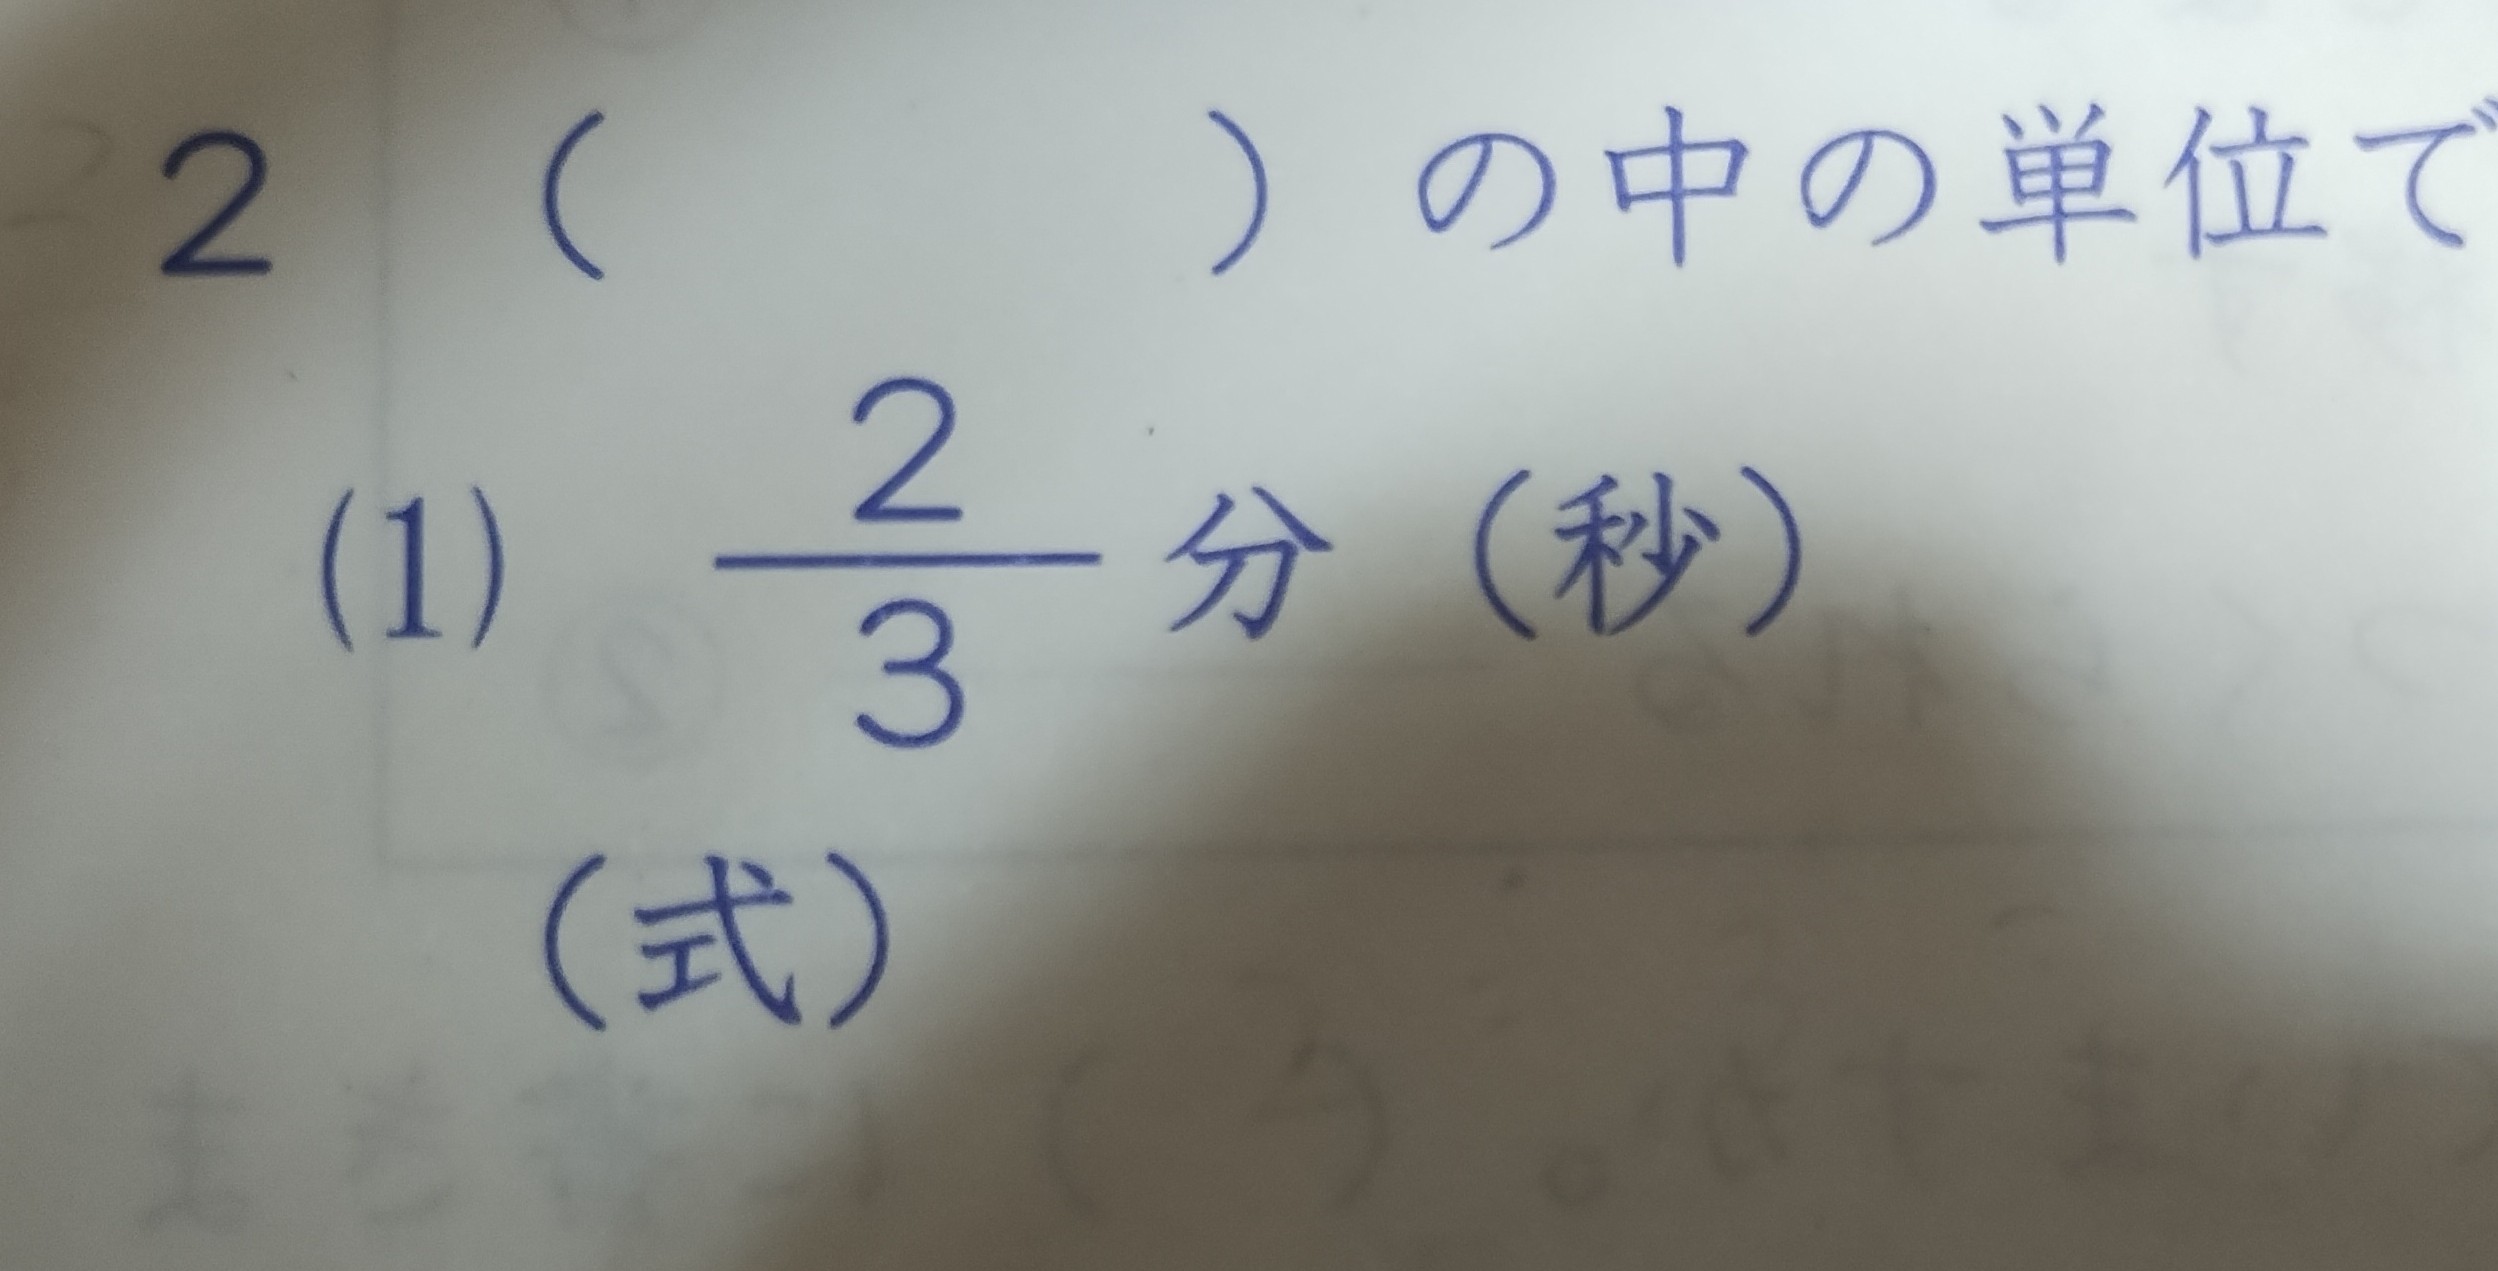 2 （　　　）の中の単位で
(1) 2/3 分（秒）
（式）